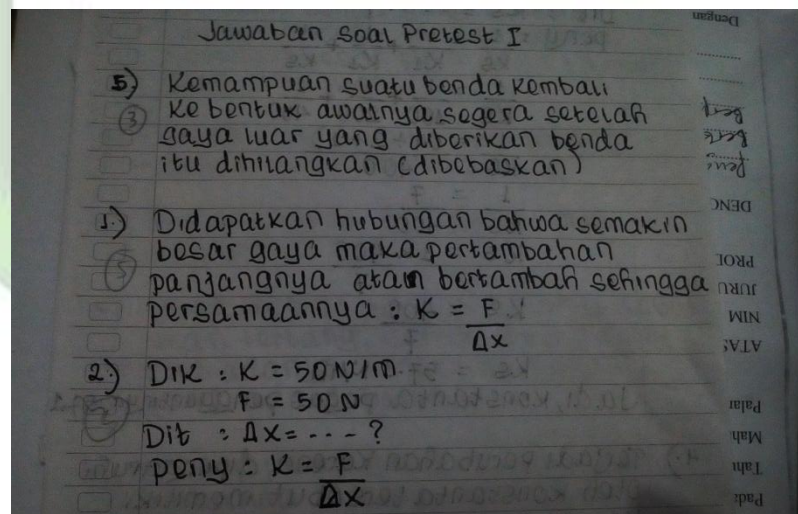 Jawaban Soal Pretest I
5) Kemampuan suatu benda kembali
ke bentuk awalnya segera setelah
③
gaya luar yang diberikan benda
itu dihilangkan (dibebaskan)
1.) Didapatkan hubungan bahwa semakin
besar gaya maka pertambahan
⑤
panjangnya akan bertambah sehingga
persamaannya : K = F
Δx
2.) Dik : K = 50 N/m
F = 50 N
Dit : Δx = - - - - ?
peny : K = F
Δx
Dengan
DENG
PROI
JURU
NIM
ATAS
Palar
Mah
Tahu
Pada